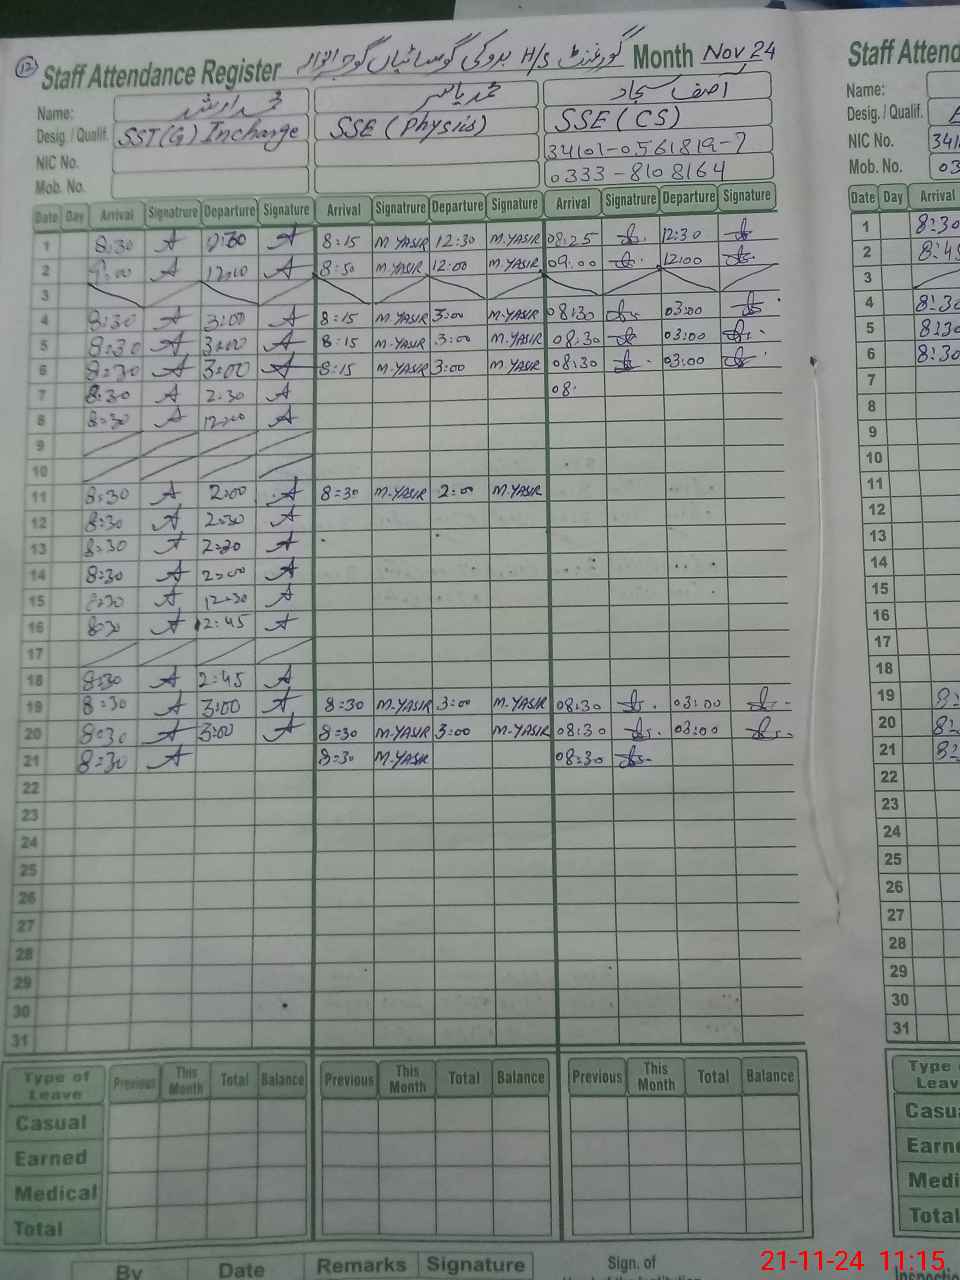 12
Staff Attendance Register گورنمنٹ H/S بروکی گوسائیاں گوجرانوالہ Month Nov 24
Name: محمد ارشد محمد یاسر آصف سجاد
Desig. / Qualif. SST(G) Incharge SSE (Physics) SSE (CS)
NIC No. 34101-0561819-7
Mob. No. 0333-8108164
Date Day Arrival Signatrure Departure Signature Arrival Signatrure Departure Signature Arrival Signatrure Departure Signature
1 8:30 A A 8:15 M.YASIR 12:30 M.YASIR 08:25 12:30
2 9:00 A 12:00 A 8:50 M.YASIR 12:00 M.YASIR 09:00 12:00
3
4 8:30 A 3:00 A 8:15 M.YASIR 3:00 M.YASIR 08:30 03:00
5 8:30 A 3:00 A 8:15 M.YASIR 3:00 M.YASIR 08:30 03:00
6 8:30 A 3:00 A 8:15 M.YASIR 3:00 M.YASIR 08:30 03:00
7 8:30 A 2:30 A 08:
8 8:30 A 12:00 A
9
10
11 8:30 A 2:00 A 8:30 M.YASIR 2:00 M.YASIR
12 8:30 A 2:30 A
13 8:30 A 2:30 A
14 8:30 A 2:00 A
15 8:30 A 12:30 A
16 8:30 A 2:45 A
17
18 8:30 A 2:45 A
19 8:30 A 3:00 A 8:30 M.YASIR 3:00 M.YASIR 08:30 03:00
20 8:30 A 3:00 A 8:30 M.YASIR 3:00 M.YASIR 08:30 03:00
21 8:30 A 8:30 M.YASIR 08:30
22
23
24
25
26
27
28
29
30
31
Type of Leave Previous This Month Total Balance Previous This Month Total Balance Previous This Month Total Balance
Casual
Earned
Medical
Total
By Date Remarks Signature Sign. of
Staff Attend
Name:
Desig. / Qualif.
NIC No. 341
Mob. No. 03
Date Day Arrival
1 8:30
2 8:45
3
4 8:30
5 8:30
6 8:30
7
8
9
10
11
12
13
14
15
16
17
18
19
20
21
22
23
24
25
26
27
28
29
30
31
Type Leav
Casu
Earn
Medi
Total
21-11-24 11:15